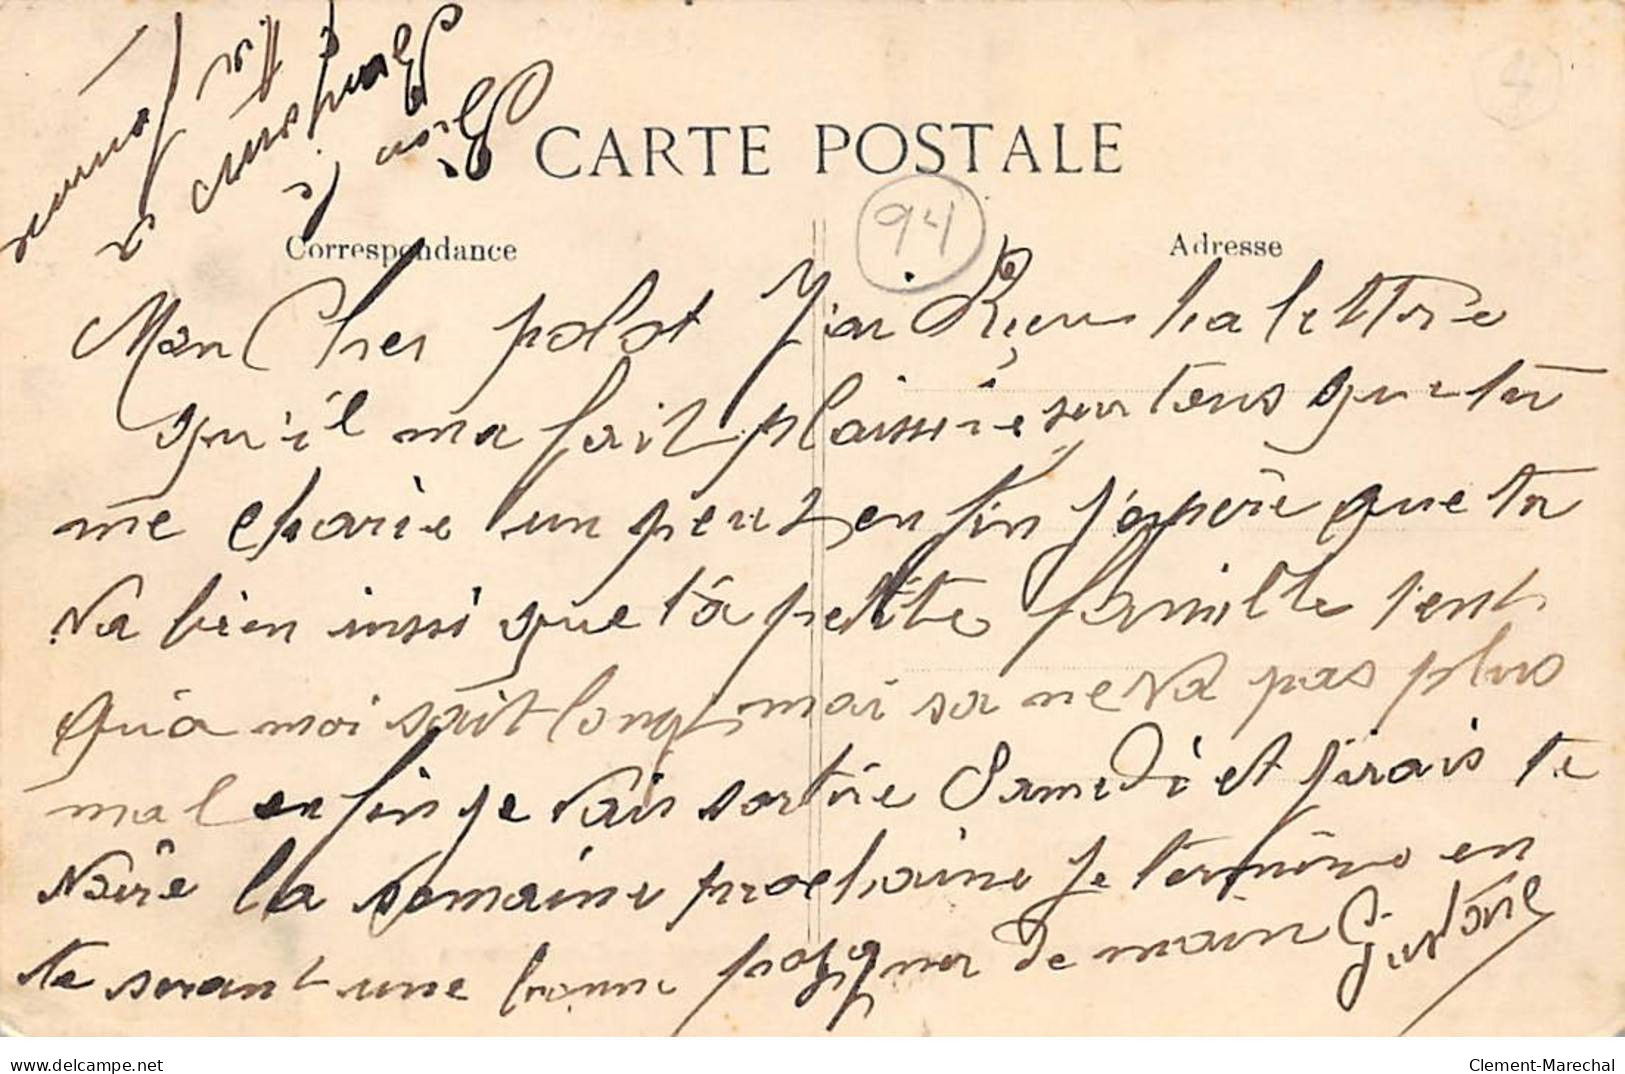 Bien le
Bonjour
a
ta femme
CARTE POSTALE
4
94
Correspondance
Adresse
Mon Cher polot J'ai Reçu ta lettre
qu'il ma fait plaissire sur tous que tu
me charie un peut enfin j'espère que tu
va bien inssi que ta petite famille sent
qu'a moi sait long mai sa ne va pas plus
mal enfin je vais sortire Samedi et j'irais te
voire la semaine prochaine je termine en
te serant une bonne poigner de main Gustave
Clement-Marechal